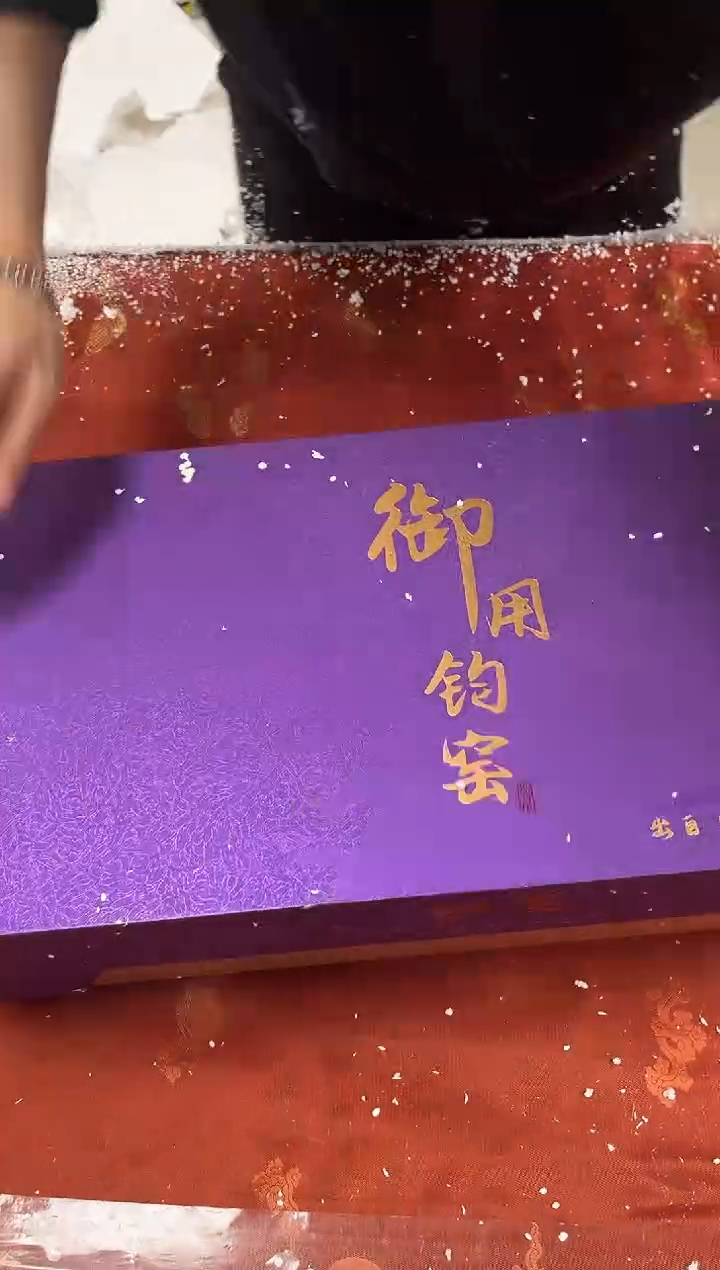 御用
钧窑
出自